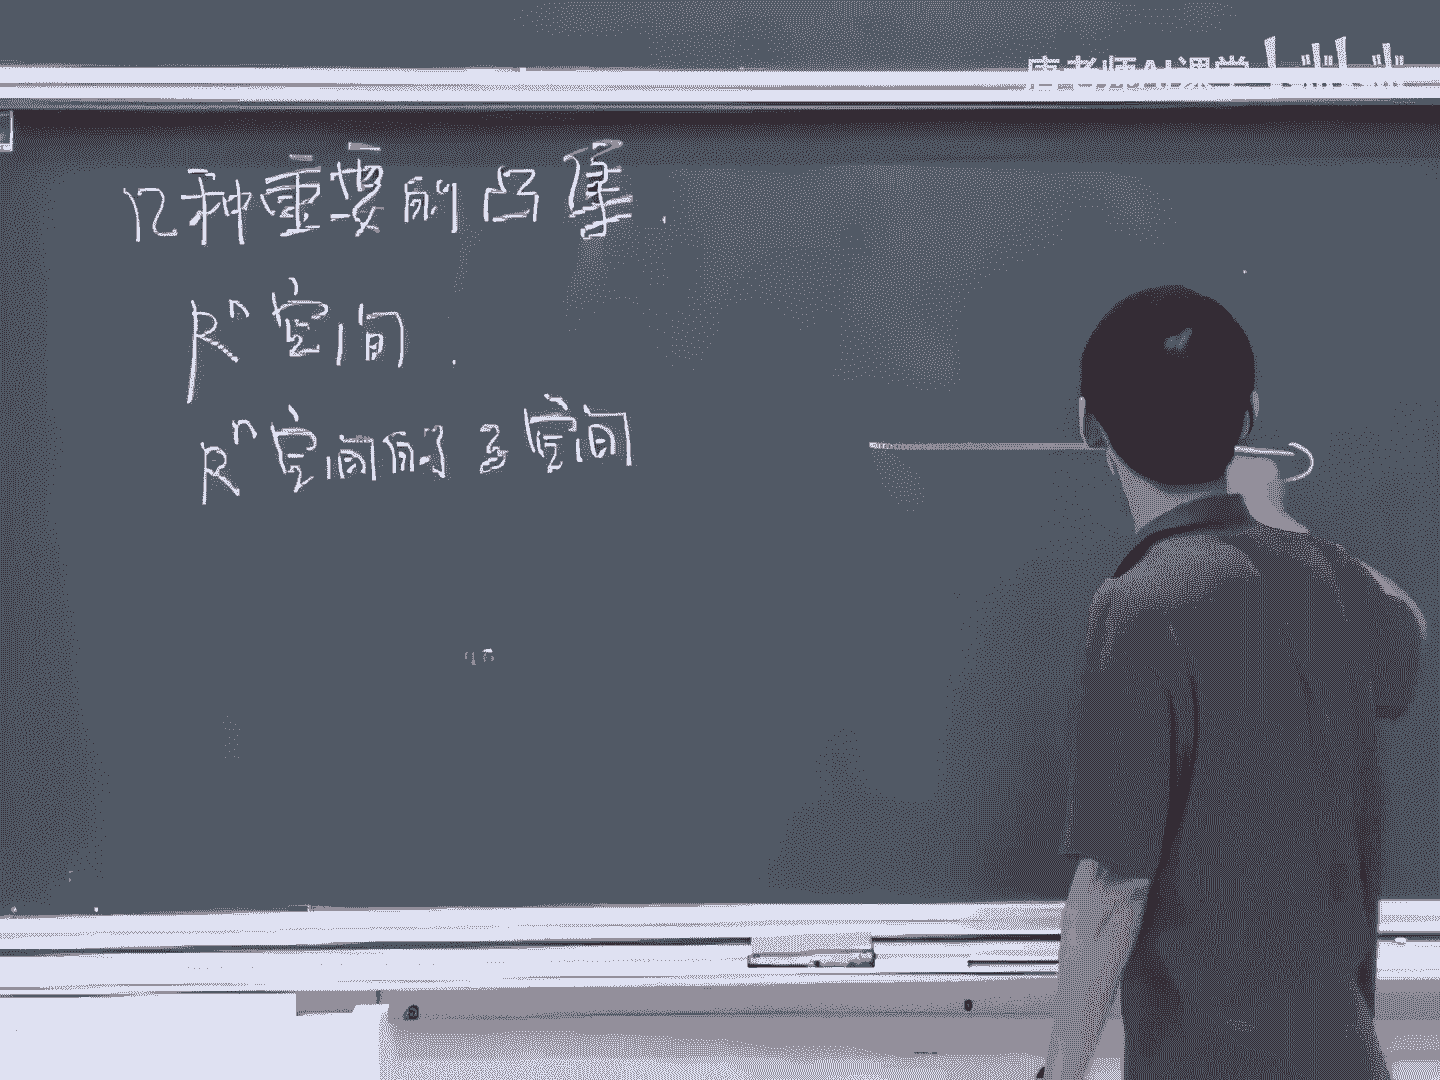 唐老师AI课堂
几种重要的凸集.
Rⁿ空间.
Rⁿ空间的子空间